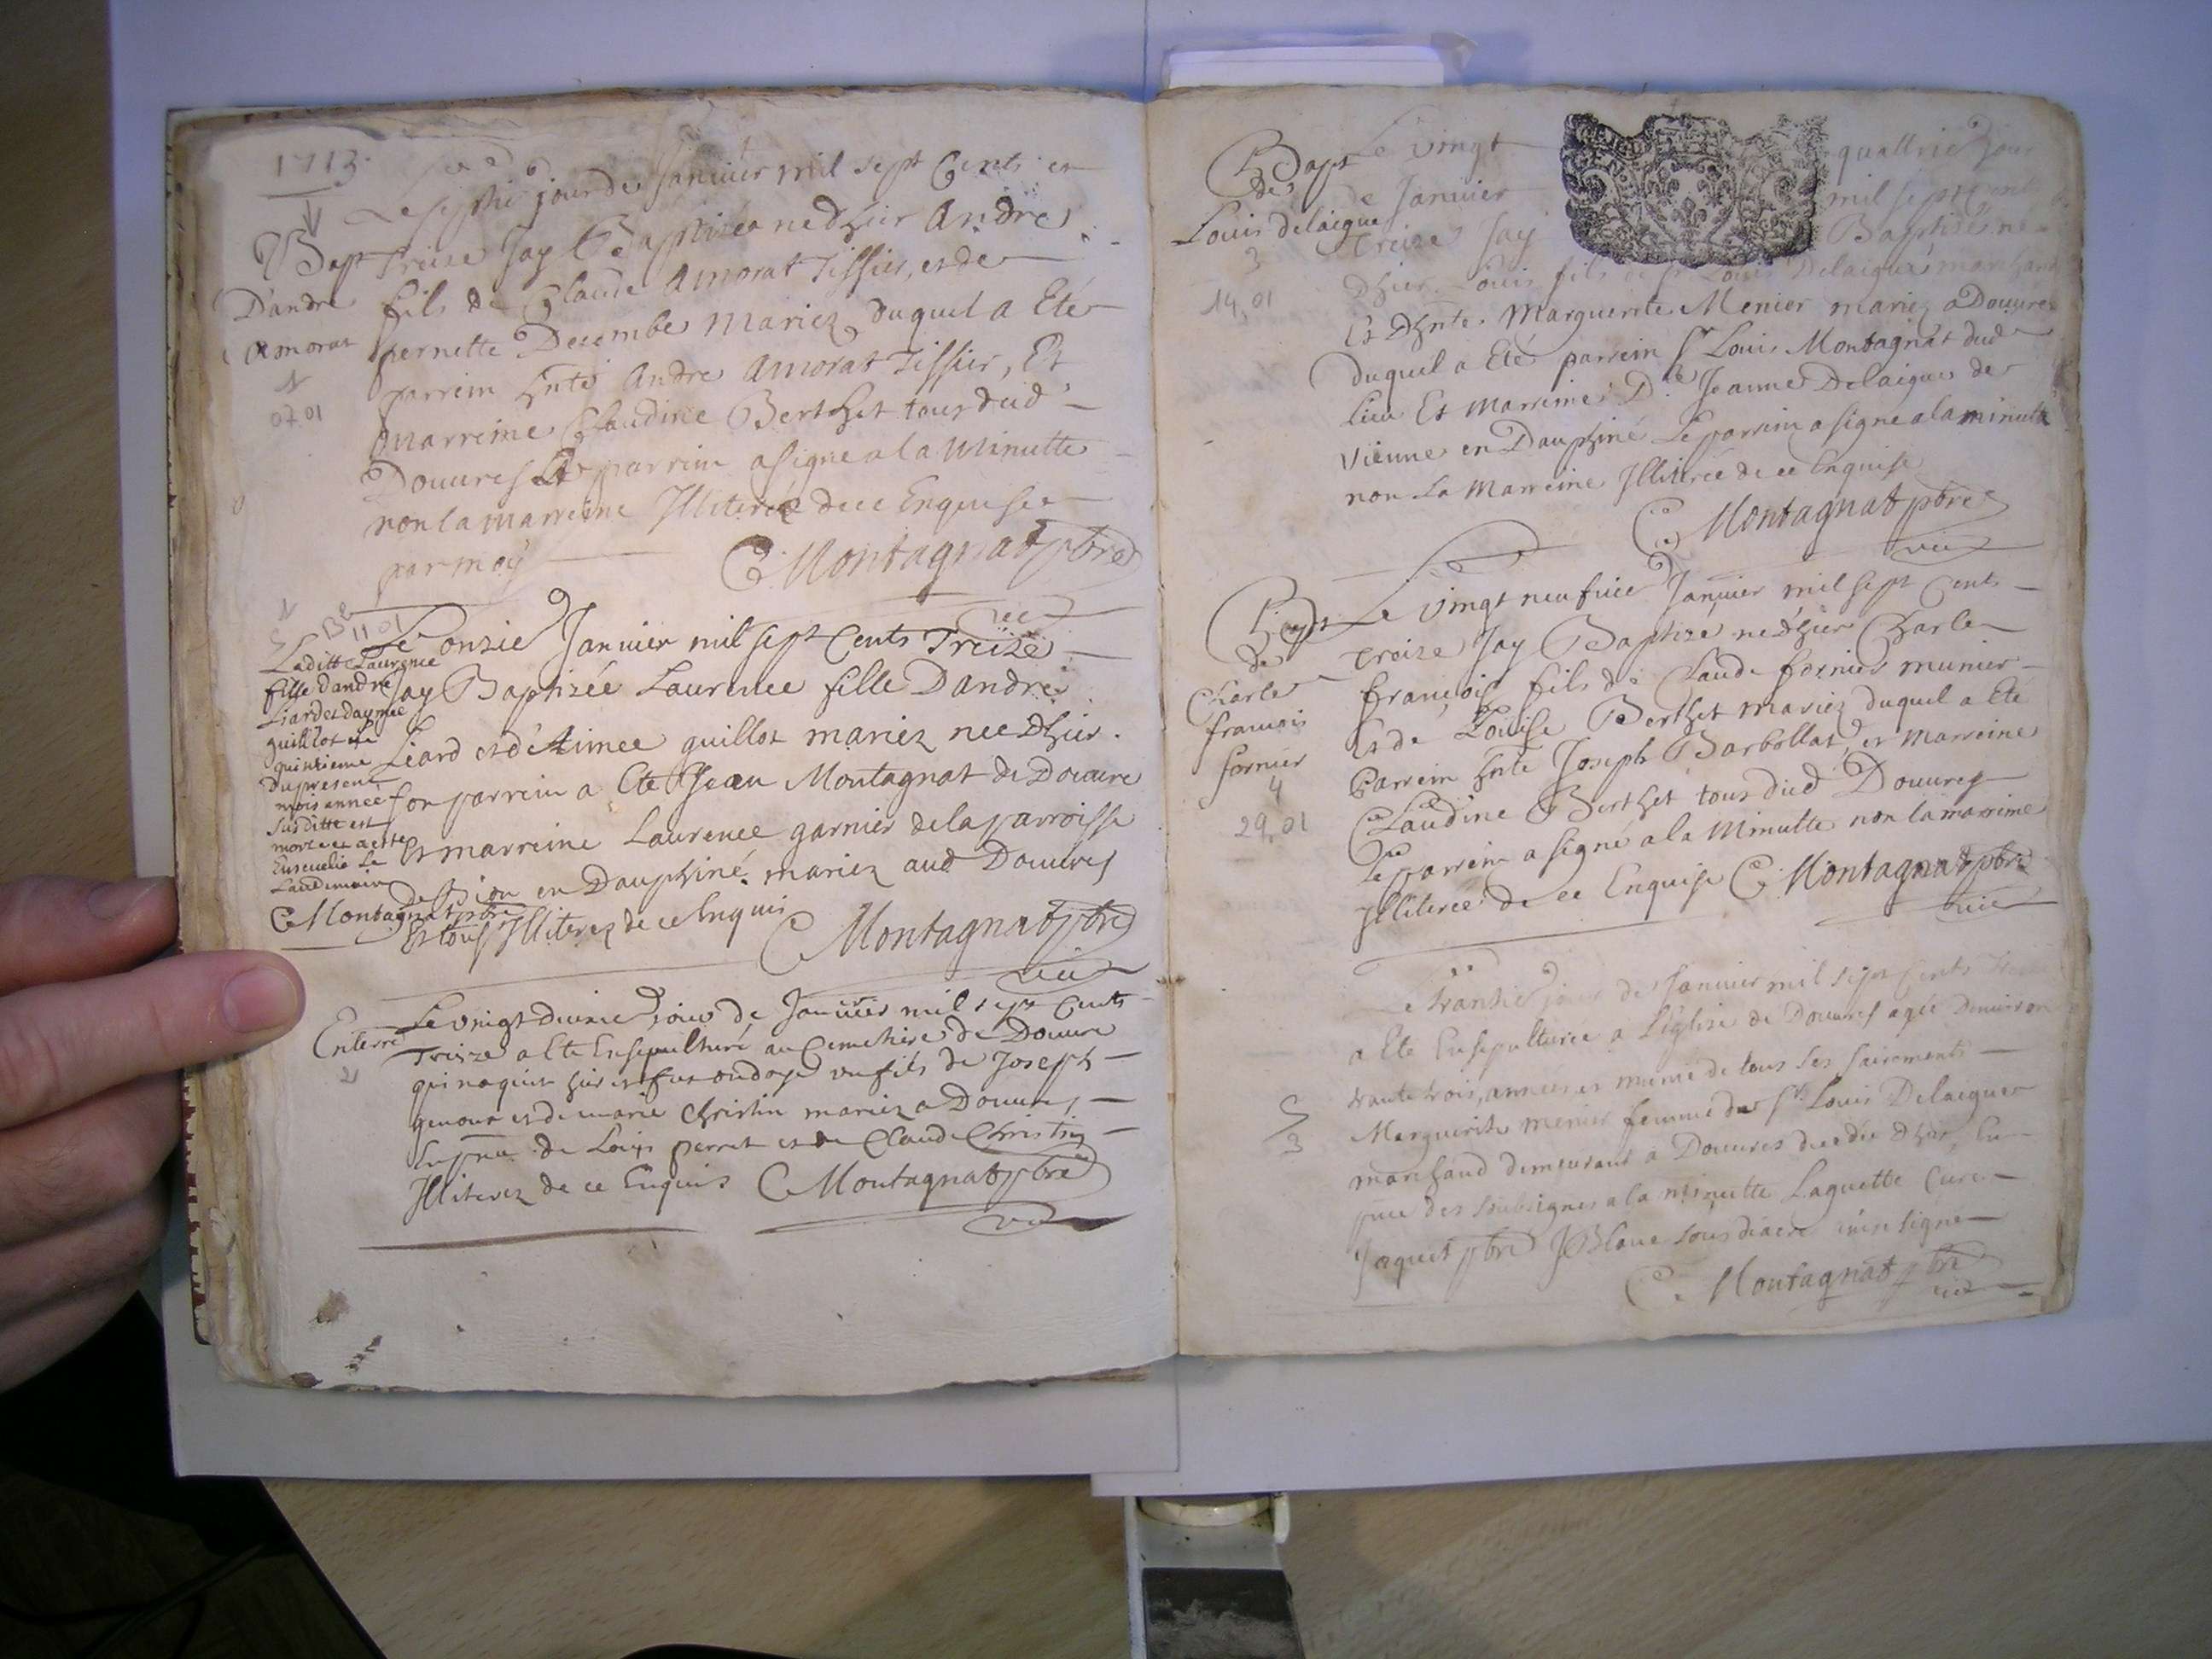 1713
Le septie jour de Janvier mil sept Cents et
Bapt Treize Jay Baptizé ne dhier Andre
D'andre fils de Claude Amorat Tissier, et de
Amorat pernette Decembe Mariez, duquel a Eté
1
07.01
parrein hnte Andre Amorat Tissier, Et
Marreine Claudine Berthet tous dud
Douvres Le parrein a signe a la Minutte
non la marreine Illiterée de ce Enquise
par moy C Montagnat pbre
vic
Be
11 01
Le onzie Janvier mil sept Cents Treize
Jay Baptizée Laurence fille D'andre
Liard et d'Aimee guillot mariez nee dhier.
son parrein a Eté Jean Montagnat de Douvre
Et marreine Laurence garnier de la parroisse
de Sion en Dauphiné mariez aud Douvres
Et tous Illiterez de ce Enquis C Montagnat pbre
vic
Laditte Laurence
fille d'andre
Liard et daymée
guillot le
quinzieme
du present
mois année
susditte est
morte et a esté
Ensevelie le
Landemain
C Montagnat pbre
Enterré
2
Le vingt deuxie jour de Janvier mil sept Cents
Treize a Eté Ensepulturé au Cemetiere de Douvre
qui naquit hier et fut ondoyé un fils de Joseph
genoux et de marie Christin mariez a Douvres,
En pnce de Louis perret et de Claude Christin
Illiterez de ce Enquis C Montagnat pbre
vic
Bapt
de
Louis delaigue
3
14,01
Le vingt quattrie Jour
de Janvier mil sept Cents
Treize Jay Baptizé ne
Dhier Louis fils de sr Louis Delaigue marchand
Et Dhnte Marguerite Menier mariez a Douvres
Duquel a Eté parrein sr Louis Montagnat dud
lieu Et Marreine Dlle Jeanne Delaigue de
vienne en Dauphiné Le parrein a signe a la minutte
non La Marreine Illiterée de ce Enquise
C Montagnat pbre
vic
Bapt
de
Charle
francois
fornier
4
29,01
Le vingt neufvie Janvier mil sept Cents
Treize Jay Baptize ne dhier Charle
françois fils de Claude fornier munier
Et de Louise Berthet mariez duquel a Eté
Parrein hnte Joseph Barbollat, et Marreine
Claudine Berthet tous dud Douvres
Le parrein a signé a la Minutte non la marreine
Illiterée de ce Enquise C Montagnat pbre
vic
3
Le trantie jour de Janvier mil sept Cents
a Eté Ensepulturée a L'église de Douvres agée denviron
trante trois, années et munie de tous ses sairements
Marguerite menier femme du sr Louis Delaigue
marchand demeurant a Douvres decedée dhier, En
pnce des soubsignes a la minutte Laguette Curé
Jaquet pbre JBlanc sousdiacre
C. Montagnat pbre
vic